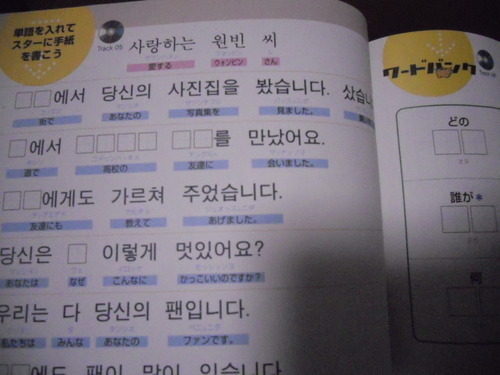 単語を入れて
スターに手紙
を書こう
Track 05
사랑하는 원빈 씨
愛する ウォンビン さん
□□에서 당신의 사진집을 봤습니다. 샀습니
街で あなたの 写真集を 見ました。
□에서 □□□□ □□를 만났어요.
道で 高校の 友達に 会いました。
□□에게도 가르쳐 주었습니다.
友達にも 教えて あげました。
당신은 □ 이렇게 멋있어요?
あなたは なぜ こんなに かっこいいのですか?
우리는 다 당신의 팬입니다.
私たちは みんな あなたの ファンです。
□에도 팬이 많이 있습니다.
ワードバンク
Track
どの
誰が
何